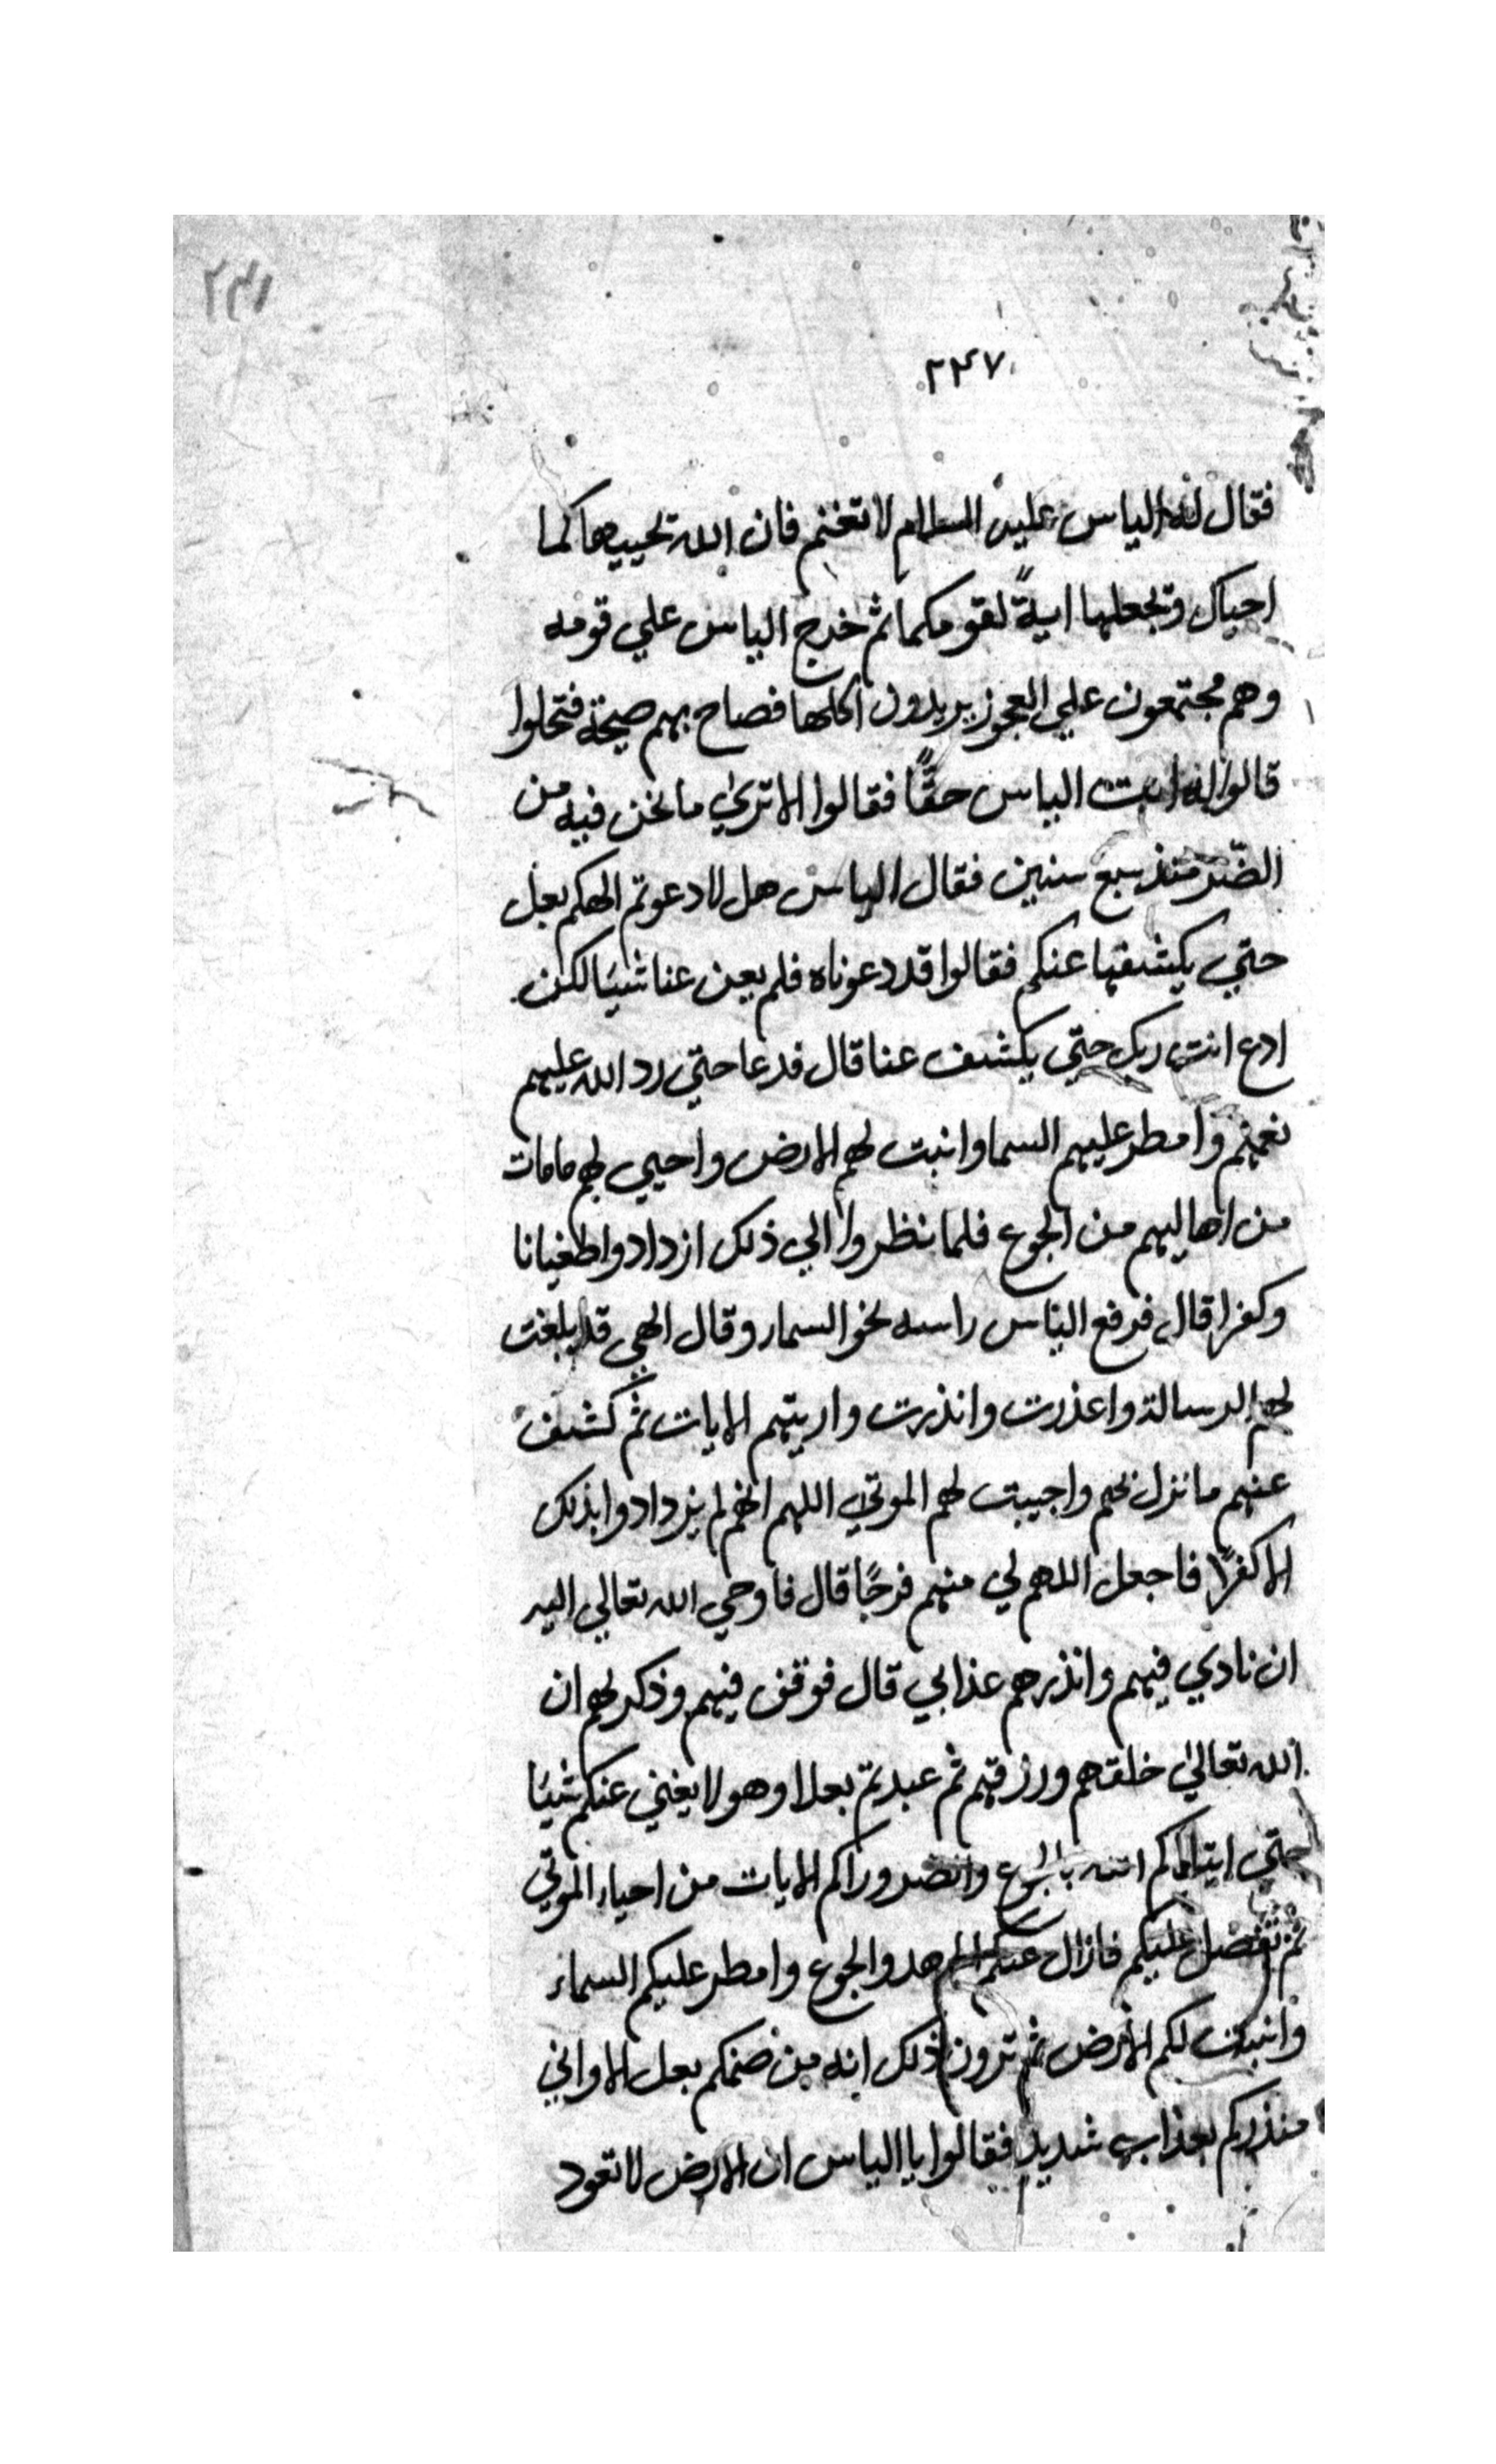 ٢٤١
٢٤٧
فقال له الياس عليه السلام لا تغتم فان الله يحييها كما
احياك ويجعلها اية لقومكما ثم خرج الياس علي قومه
وهم مجتمعون علي العجوز يريدون اكلها فصاح بهم صيحة فتحلوا
قالوا له انت الياس حقًا فقالوا الا تري ما نحن فيه من
الضّر منذ سبع سنين فقال الياس هل لا دعوتم الهكم بعل
حتي يكشفها عنكم فقالوا قد دعوناه فلم يعن عنا شيئا لكن
ادع انت ربك حتي يكشف عنا قال فدعا حتي رد الله عليهم
نعمهم وامطر عليهم السما وانبت لهم الارض واحيي لهم مامات
من اهاليهم من الجوع فلما نظروا الي ذلك ازدادوا طغيانا
وكفرا قال فرفع الياس راسه نحو السماء وقال الهي قد بلغت
لهم الرسالة واعذرت وانذرت واريتهم الايات ثم كشف
عنهم ما نزل بهم واجيبت لهم الموتي اللهم انهم لم يزدادوا بذلك
الا كفرًا فاجعل اللهم لي منهم فرجًا قال فاوحي الله تعالي اليه
ان نادي فيهم وانذرهم عذابي قال فوقف فيهم وذكر لهم ان
الله تعالي خلقهم ورزقهم ثم عبدتم بعلا وهو لا يغني عنكم شيئا
حتي ابتلاكم الله بالجوع والضر وراكم الايات من احياء الموتي
ثم تفضل عليكم فازال عنكم هد والجوع وامطر عليكم السماء
وانبتت لكم الارض ثم ترون ذلك انه من صنمكم بعل الا واني
منذركم بعذاب شديد فقالوا يا الياس ان الارض لا تعود